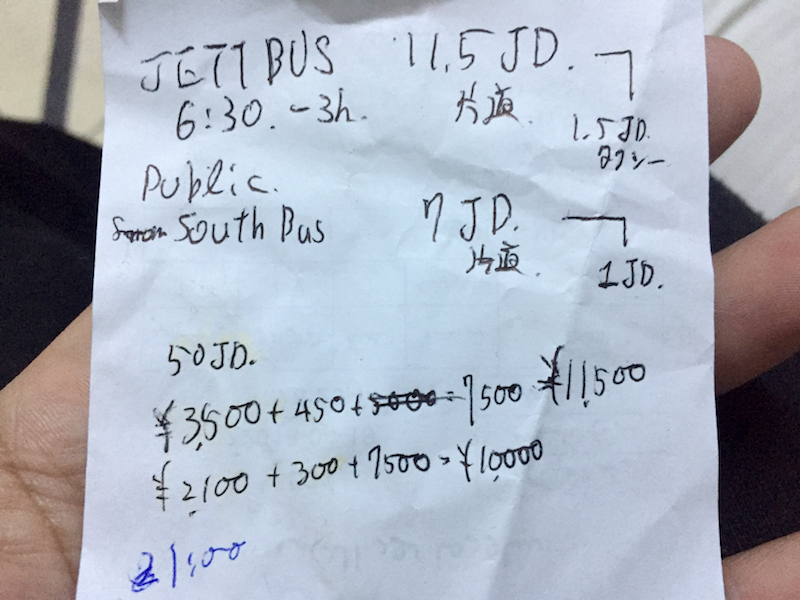 JETT BUS 11.5 JD.
6:30.-3h. 片道. 1.5 JD.
タクシー
Public.
from South Bus 7 JD.
片道. 1JD.
50JD.
¥3,500 + 450 + 7500 = ¥11,500
¥2,100 + 300 + 7500 = ¥10,000
21:00